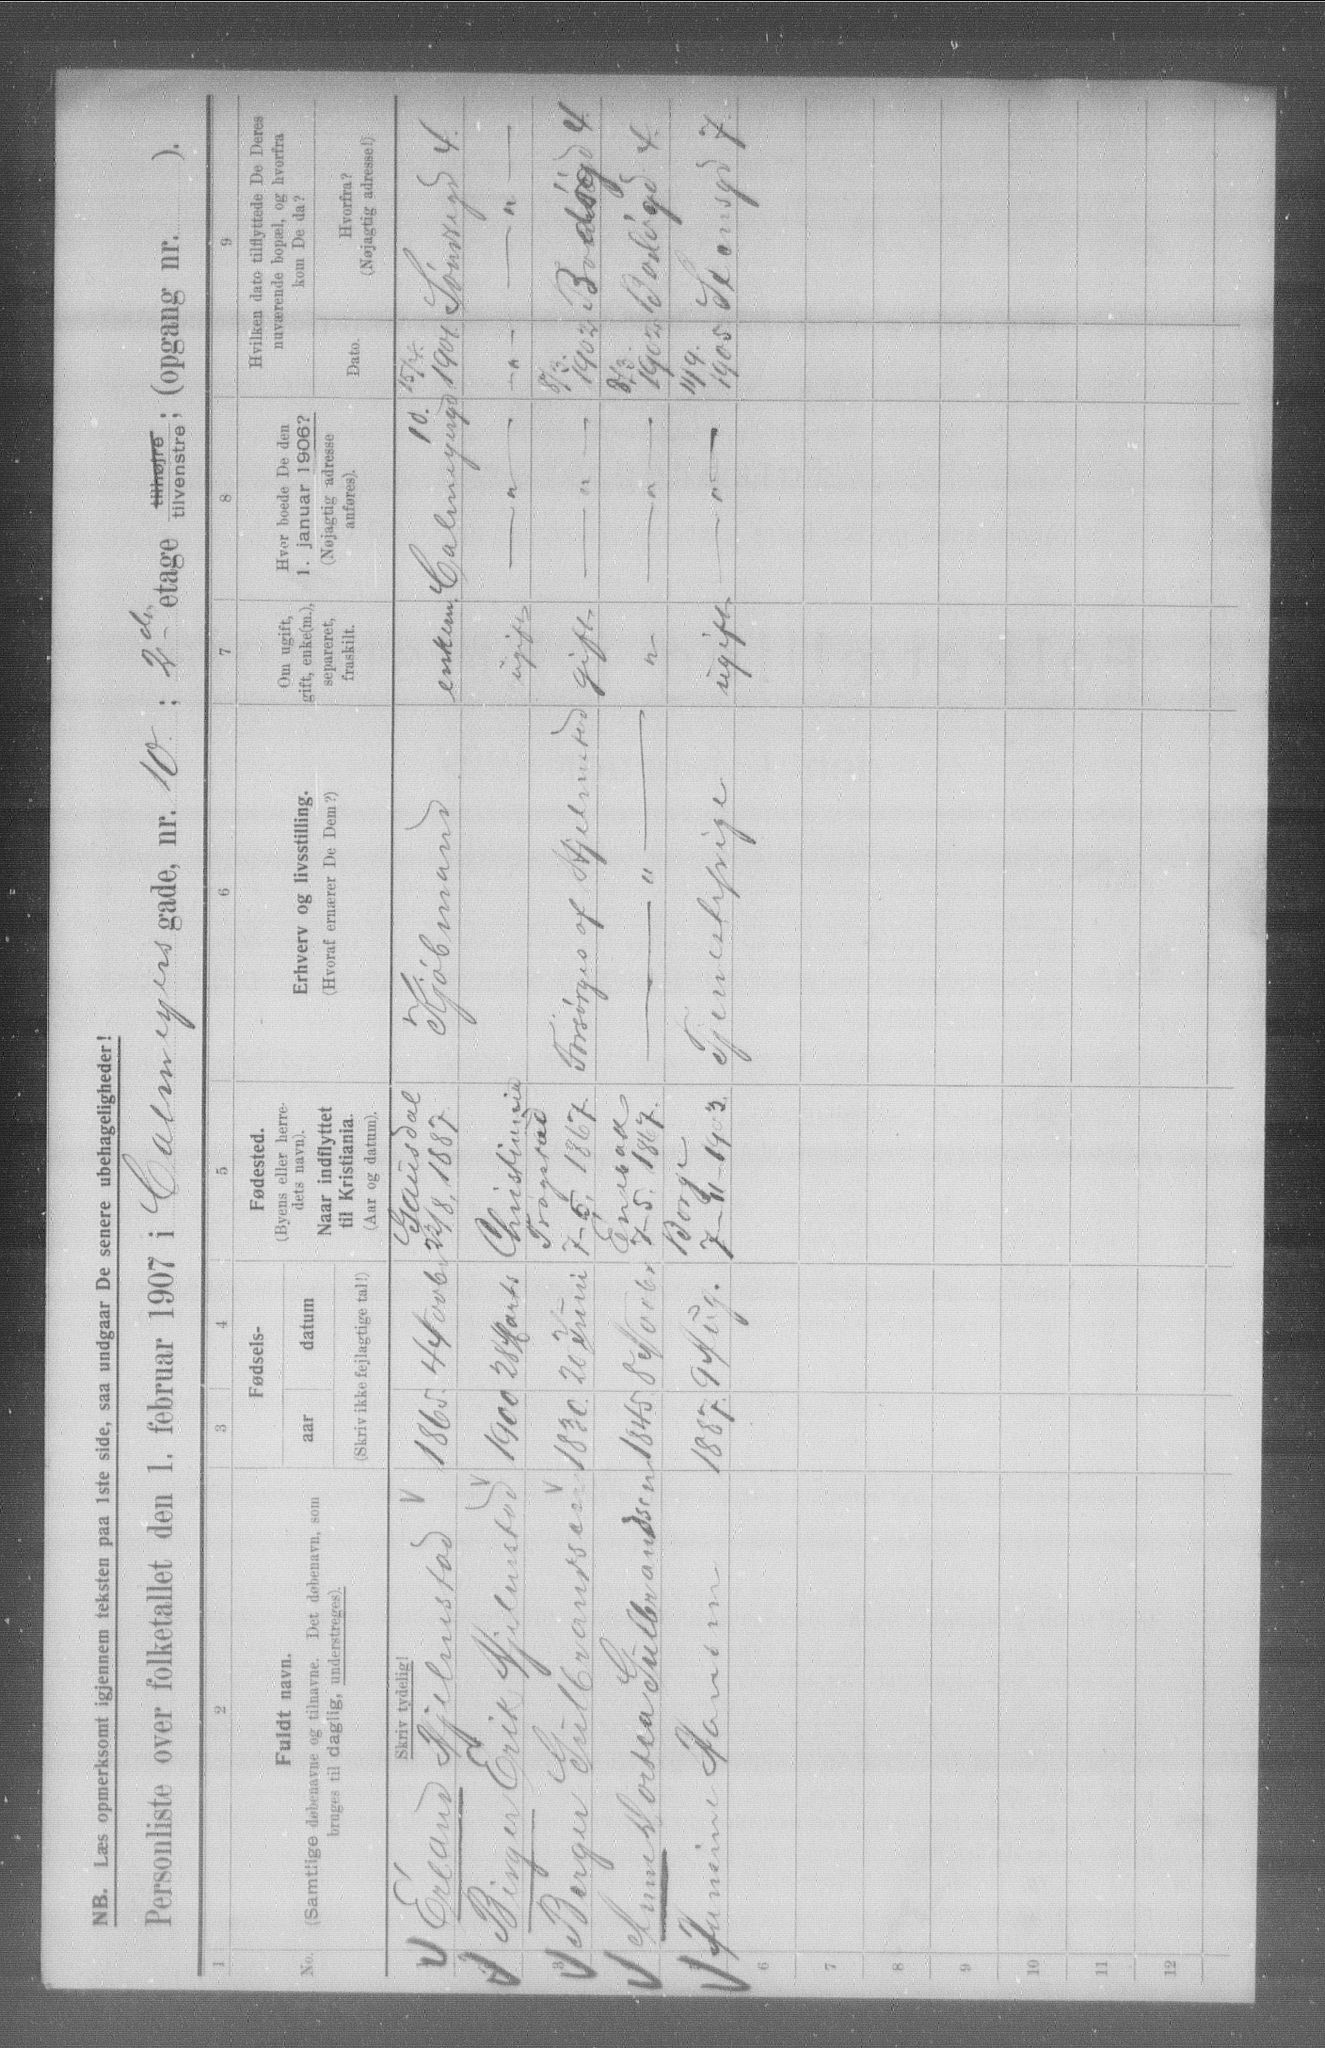 NB. Læs opmerksomt igjennem teksten paa 1ste side, saa undgaar De senere ubehageligheder!
Personliste over folketallet den 1. februar 1907 i Calmeyers gade, nr. 10 ; 2den etage tilhøjre tilvenstre ; (opgang nr. ).
1 2 3 4 5 6 7 8 9
No.
Fuldt navn.
(Samtlige døbenavne og tilnavne. Det døbenavn, som
bruges til daglig, understreges).
Fødsels-
aar datum
(Skriv ikke fejlagtige tal!)
Fødested.
(Byens eller herre-
dets navn).
Naar indflyttet
til Kristiania.
(Aar og datum).
Erhverv og livsstilling.
(Hvoraf ernærer De Dem?)
Om ugift,
gift, enke(m.),
separeret,
fraskilt.
Hvor boede De den
1. januar 1906?
(Nøjagtig adresse
anføres).
Hvilken dato tilflyttede De Deres
nuværende bopæl, og hvorfra
kom De da?
Dato.
Hvorfra?
(Nøjagtig adresse!)
Skriv tydelig!
Erland Hjelmstad V 1865 4 Novbr Gausdal 22/8 1887 Kjøbmand enkem. Calmeyergd 10. 15/4. 1901 4.
Birger Erik Hjelmstad V 1900 28 Marts Christiania ugift — " — - " - — " —
3 Børger Gulbrandsen V 1830 20 Juni Trøgstad 7-5. 1867 Forsørges af Hjelmstad gift — " — 8/3. 1902 4.
Anne Dorthea Gulbrandsen 1845 8 Novbr Enebak 7-5. 1867. — " — " — " — 8/3. 1902 4.
Jensine Hansen 1887. 9 Aug. Borge 7-11-1903. Tjenestepige ugift — " — 14/9. 1905 7.
6
7
8
9
10
11
12